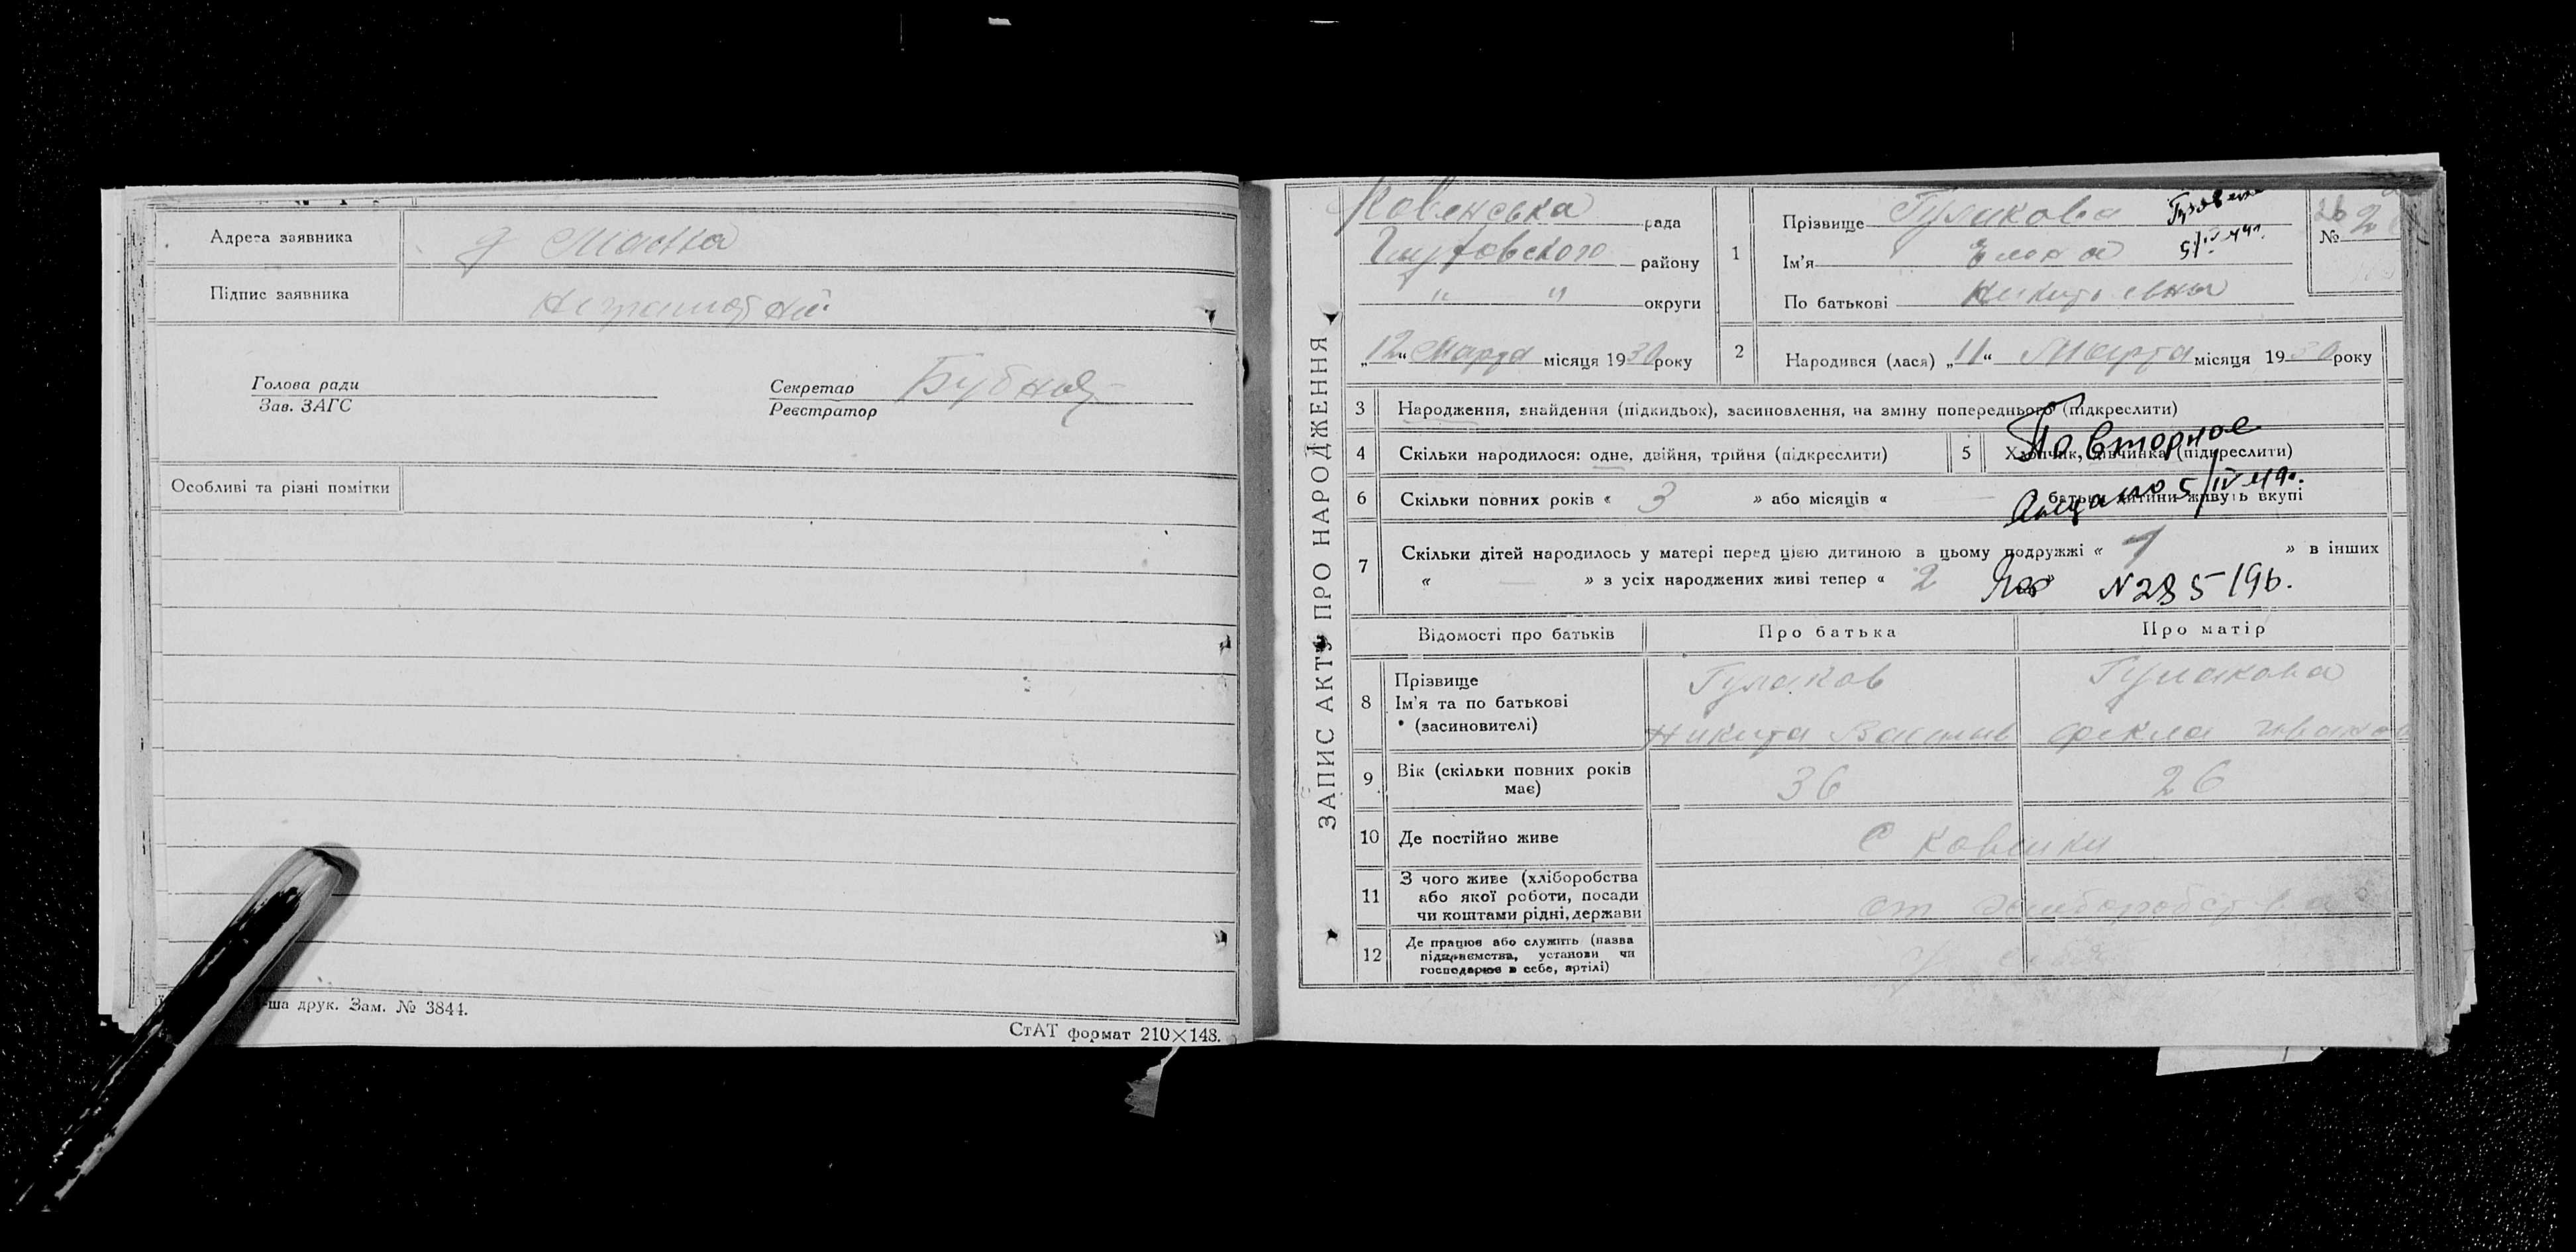 Адреса заявника
Підпис заявника
Голова ради
Зав. ЗАГС
Секретар
Реєстратор
Особливі та різні помітки
ша друк. Зам. № 3844.
СтАТ формат 210×148.
ЗАПИС АКТУ ПРО НАРОДЖЕННЯ
Ковенська рада
району
" " округи
„12“ Марта місяця 1930 року
1
Прізвище Гулакова
Ім'я
По батькові
5/IV 49г.
№
2
Народився (лася) „11“ Марта місяця 1930 року
3 Народження, знайдення (підкидьок), засиновлення, на зміну попереднього (підкреслити)
4 Скільки народилося: одне, двійня, трійня (підкреслити)
5 Хлопчик, дівчинка (підкреслити)
Повторное
6 Скільки повних років « 3 » або місяців « — батьки дитини живуть вкупі
5/IV 49г.
7 Скільки дітей народилось у матері перед цією дитиною в цьому подружжі « 1 » в інших
« — » з усіх народжених живі тепер « 2 »
Відомості про батьків
Про батька
Про матір
8 Прізвище
Ім'я та по батькові
* (засиновителі)
Гулаков
Никита
Гулакова
Фекла
9 Вік (скільки повних років має)
36
26
10 Де постійно живе
С Ковенки
11 З чого живе (хліборобства
або якої роботи, посади
чи коштами рідні, держави
от
12 Де працює або служить (назва
підприємства, установи чи
господарює в себе, артілі)